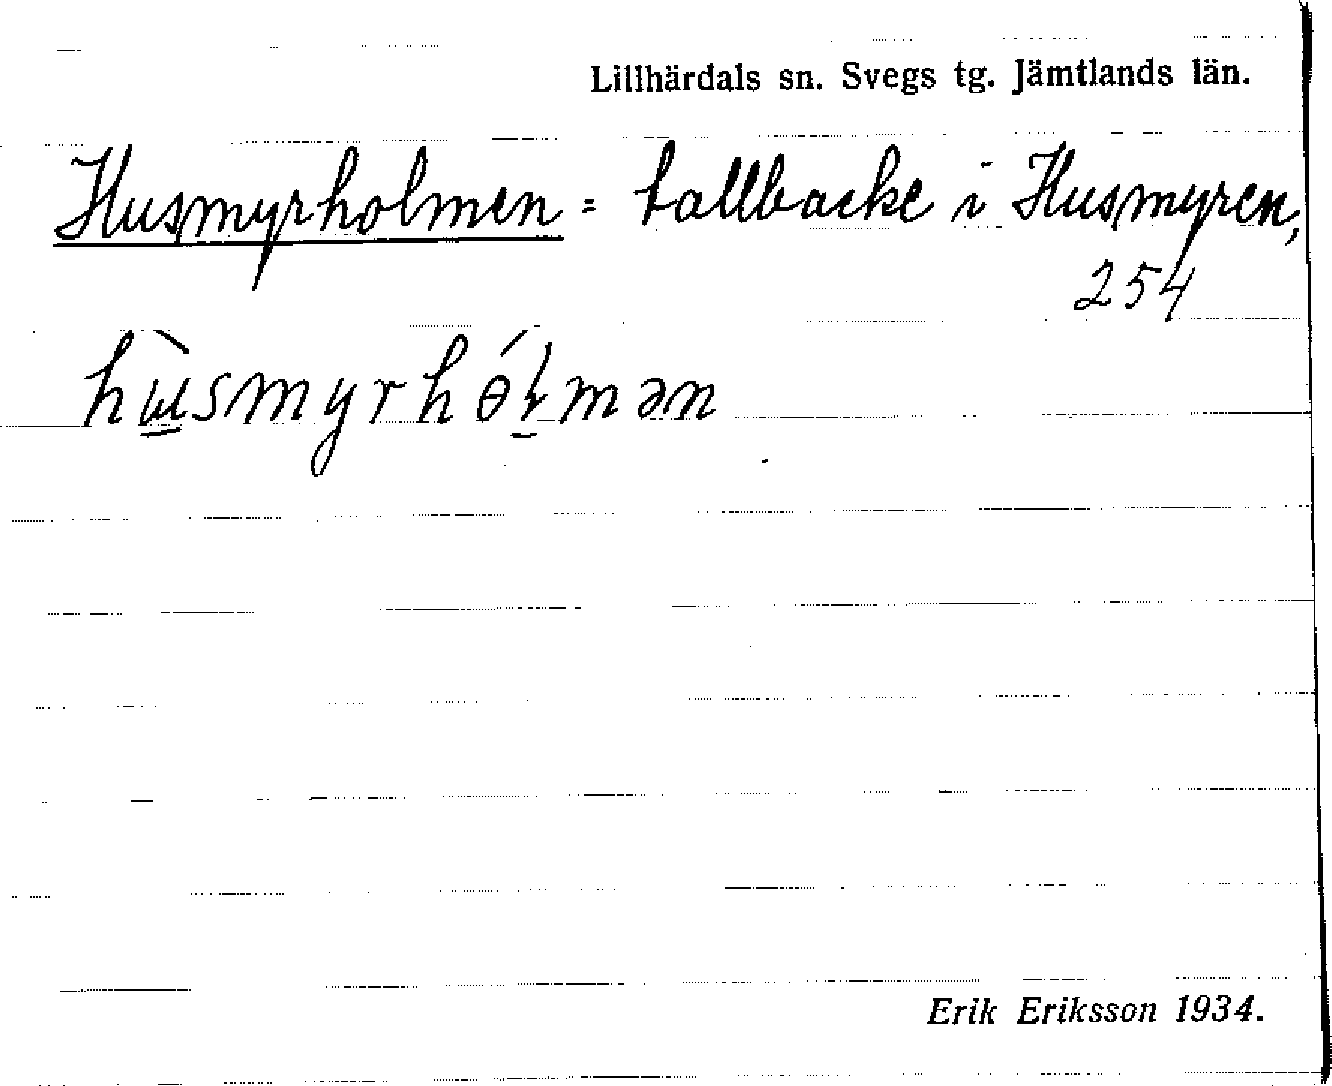 Lillhärdals sn. Svegs tg. Jämtlands län.
Husmyrholmen = tallbacke i Husmyren,
254
hùsmyrhɵ́ɫmən
Erik Eriksson 1934.